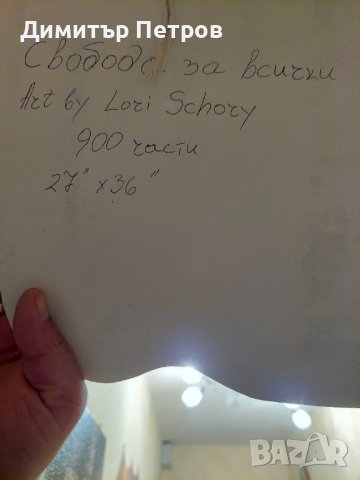 Димитър Петров
Свобода за всички
Art by Lori Schory
900 части
27" x 36"
BAZAR